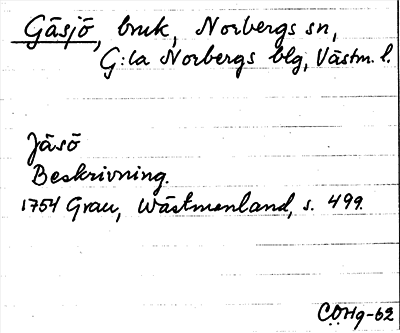 Gäsjö, bruk, Norbergs sn,
G:la Norbergs blg, Västm. l.
Jäsö
Beskrivning.
1754 Grau, Wästmenland, s. 499.
CÖHg-62